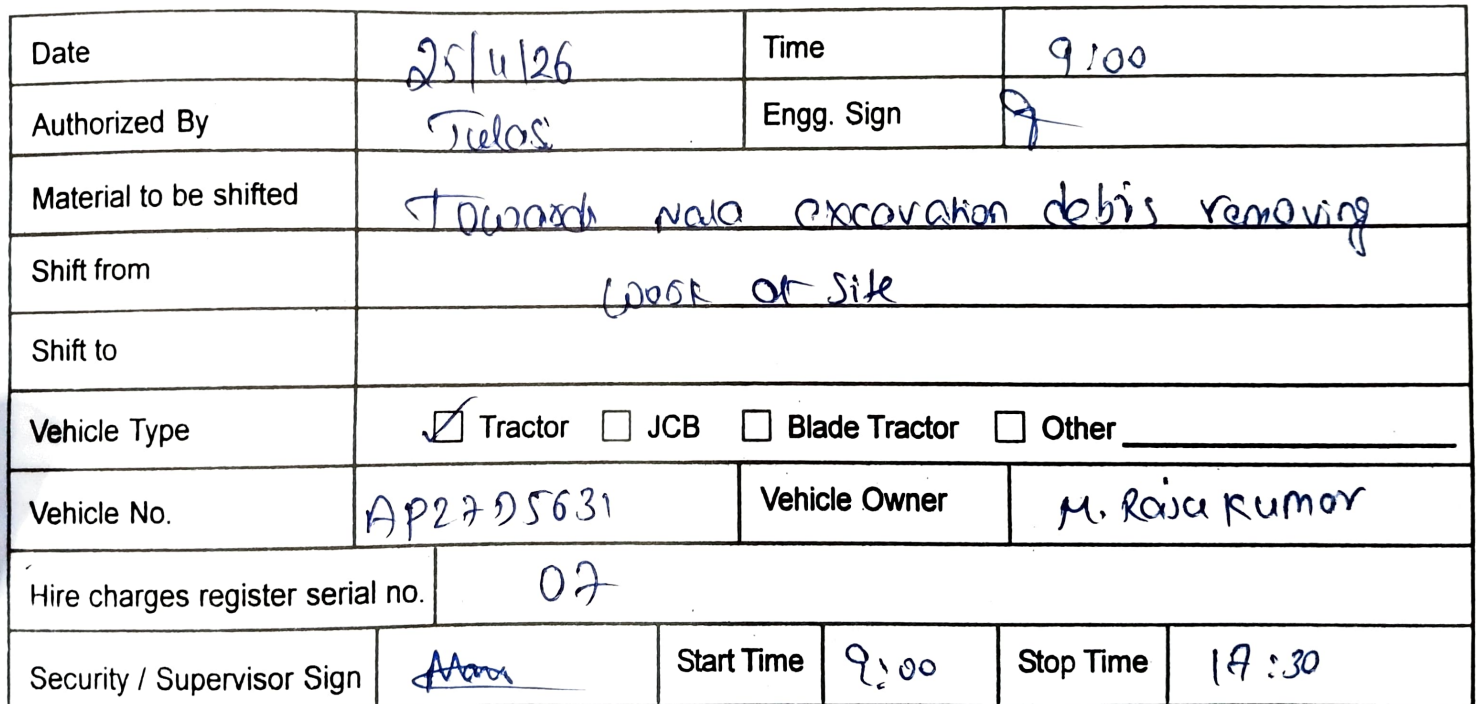 Date 25/4/26 Time 9:00
Authorized By Tulasi Engg. Sign
Material to be shifted Towards nala excavation debris removing
Shift from work at site
Shift to
Vehicle Type ☑ Tractor ☐ JCB ☐ Blade Tractor ☐ Other
Vehicle No. AP27D5631 Vehicle Owner M. Raja Kumar
Hire charges register serial no. 07
Security / Supervisor Sign Start Time 9:00 Stop Time 17:30